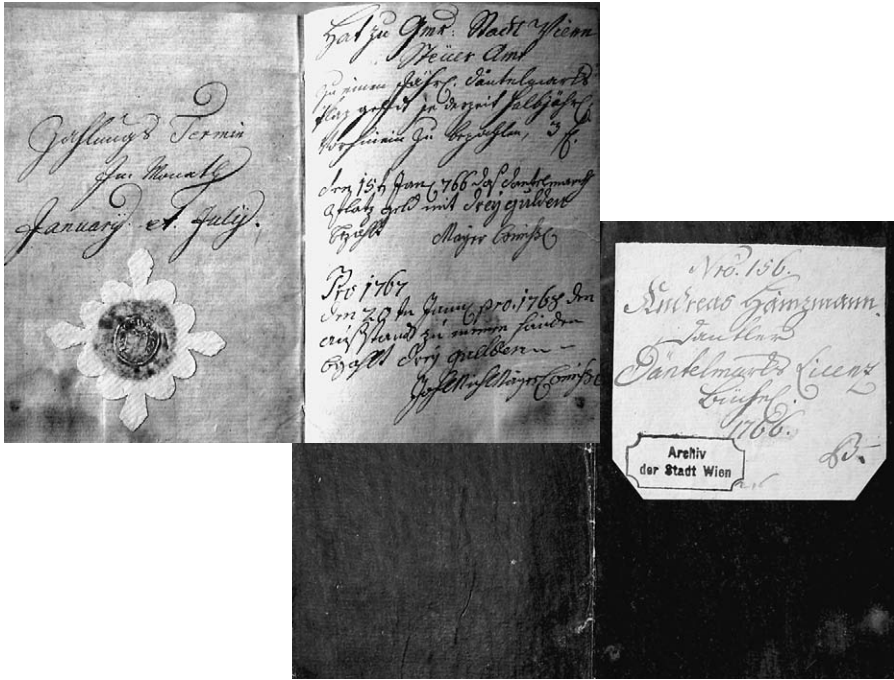 Zahlungs Termin
Im Monath
January et July.
Hat zu Gmr: Stadt Vienn
Steüer Amt
zu einen Jährl. däntelmarkts
plaz geldt jederzeit halbjährl.
Vorhinein zu bezahlen, 3 f.
den 15t Jan 766 das dantelmarckt
platz geld mit drey gulden
bezalt Mayer
Pro 1767
den 29tn Jann pro. 1768 den
ausstand zu meinen handen
bezalt drey gulden
Mayer
Nrō. 156.
Andreas Hämzmann.
dantler
Däntelmarkts Licenz
Büchel.
1766.
B.
Archiv
der Stadt Wien